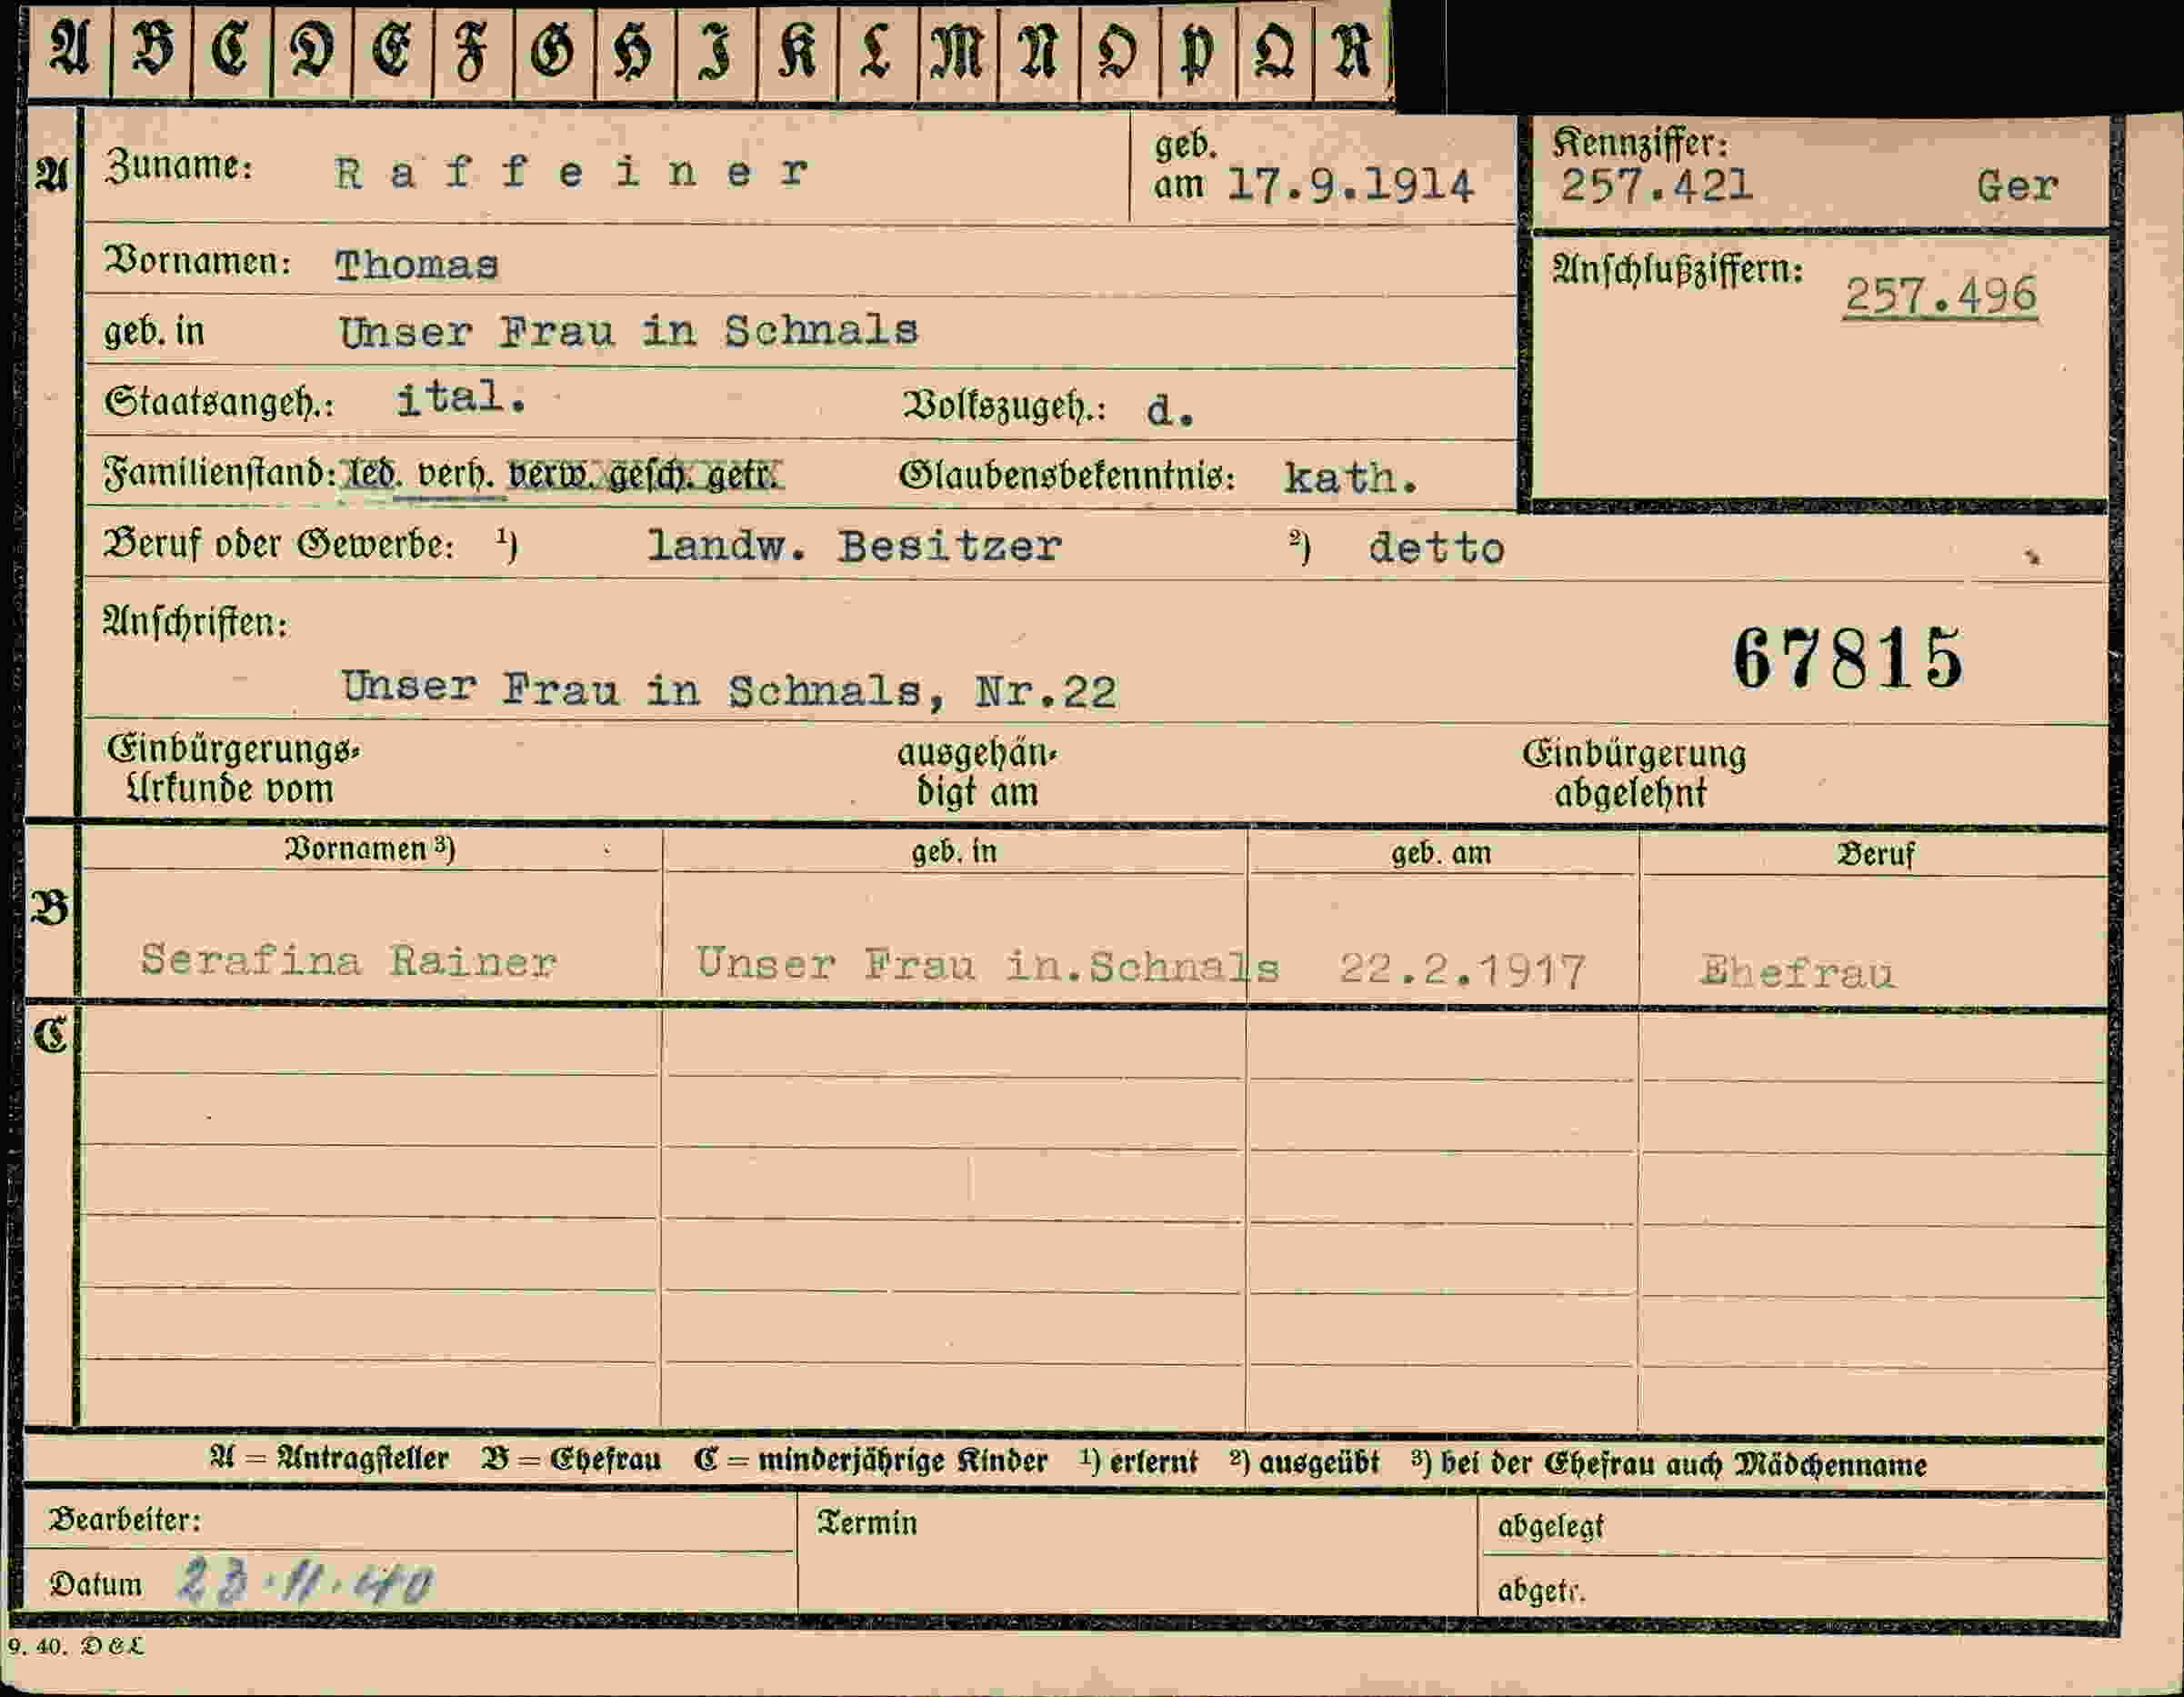 A B C D E F G H I K L M N O P Q R
A Zuname: Raffeiner geb. am 17.9.1914
Kennziffer: 257.421 Ger
Vornamen: Thomas
Anschlußziffern: 257.496
geb. in Unser Frau in Schnals
Staatsangeh.: ital. Volkszugeh.: d.
Familienstand: led. verh. verw. gesch. getr. Glaubensbekenntnis: kath.
Beruf oder Gewerbe: 1) landw. Besitzer 2) detto
Anschriften:
67815
Unser Frau in Schnals, Nr.22
Einbürgerungs- ausgehän- Einbürgerung
Urkunde vom digt am abgelehnt
Vornamen 3) geb. in geb. am Beruf
B
Serafina Rainer Unser Frau in.Schnals 22.2.1917 Ehefrau
C
A = Antragsteller B = Ehefrau C = minderjährige Kinder 1) erlernt 2) ausgeübt 3) bei der Ehefrau auch Mädchenname
Bearbeiter: Termin abgelegt
Datum 23.11.40 abgetr.
9. 40. D&L